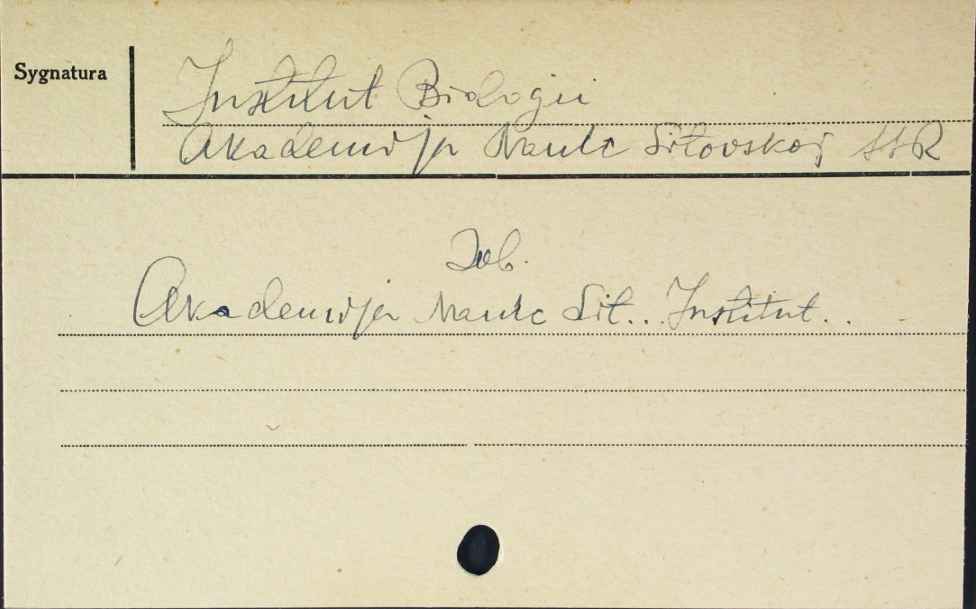 Sygnatura
Institut Biologii
Akademija Nauk Litovskoj SSR
Zob.
Akademija Nauk Lit.. Institut..